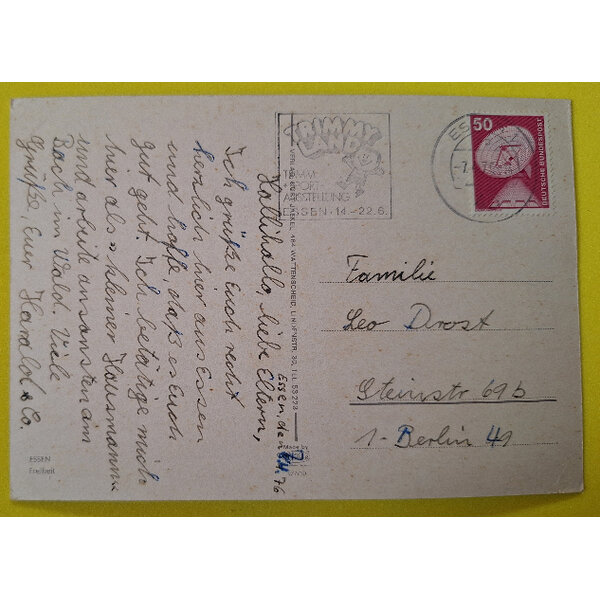 Essen, den
76
Hallihallo, liebe Eltern,
Ich grüße Euch recht
herzlich hier aus Essen
und hoffe daß es Euch
gut geht. Ich betätige mich
hier als "kleiner Hausmann"
und arbeite ansonsten am
Bach im Wald. Viele
Grüße Euer Harald & Co.
ESSEN
Freiheit
TRIMMY
LAND
SPORT
AUSSTELLUNG
ESSEN · 14.–22.6.
50
DEUTSCHE BUNDESPOST
Familie
Leo Drost
Steinstr 69b
1-Berlin 49